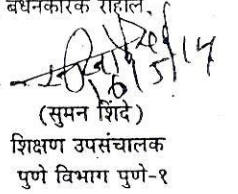 बंधनकारक राहील.
16/5/14
(सुमन शिंदे)
शिक्षण उपसंचालक
पुणे विभाग पुणे-१